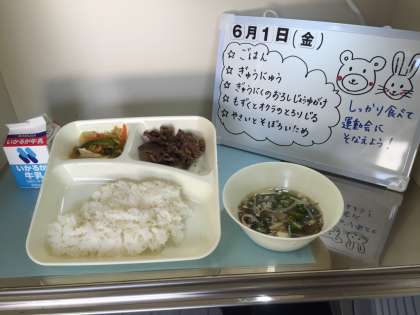 6月1日(金)
☆ ごはん
☆ ぎゅうにゅう
☆ ぎゅうにくのおろしじょうゆがけ
☆ もずくとオクラのとろりじる
☆ やさいとそぼろいため
しっかり食べて
運動会に
そなえよう!
いかるが牛乳
いかるが
牛乳